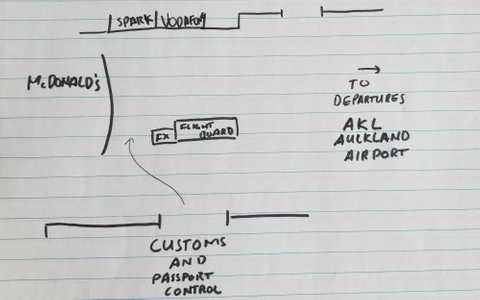 SPARK VODAFONE
McDONALD'S
TO
DEPARTURES
AKL
AUCKLAND
AIRPORT
EX
FLIGHT
BOARD
CUSTOMS
AND
PASSPORT
CONTROL